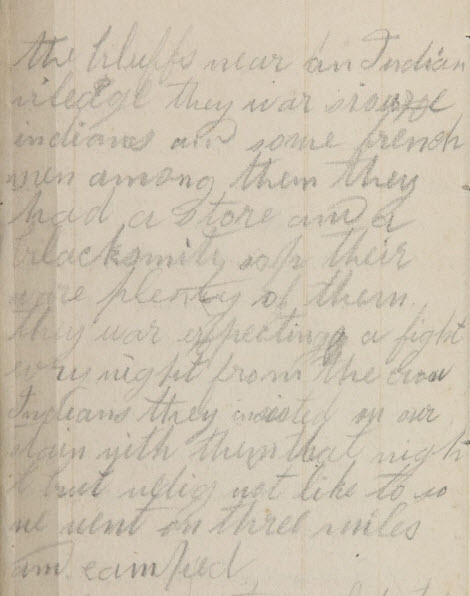 the bluffs near an Indian
viledge they war siouxe
indians and some french
men among them they
had a store and a
blacksmith sop their
ware plenty of them.
they war expecting a fight
every night from the crow
Indians they insisted on our
stain with them that night
but we did not like to so
we went on three miles
and camped